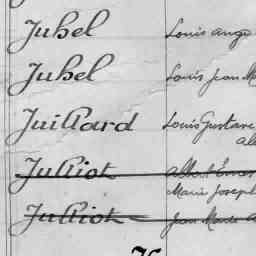 Juhel Louis Ange
Juhel Louis Jean M
Juillard Louis Gustave
Al
Julliot Albert Ernes
Marie Joseph
Julliot Jean Marie A
K